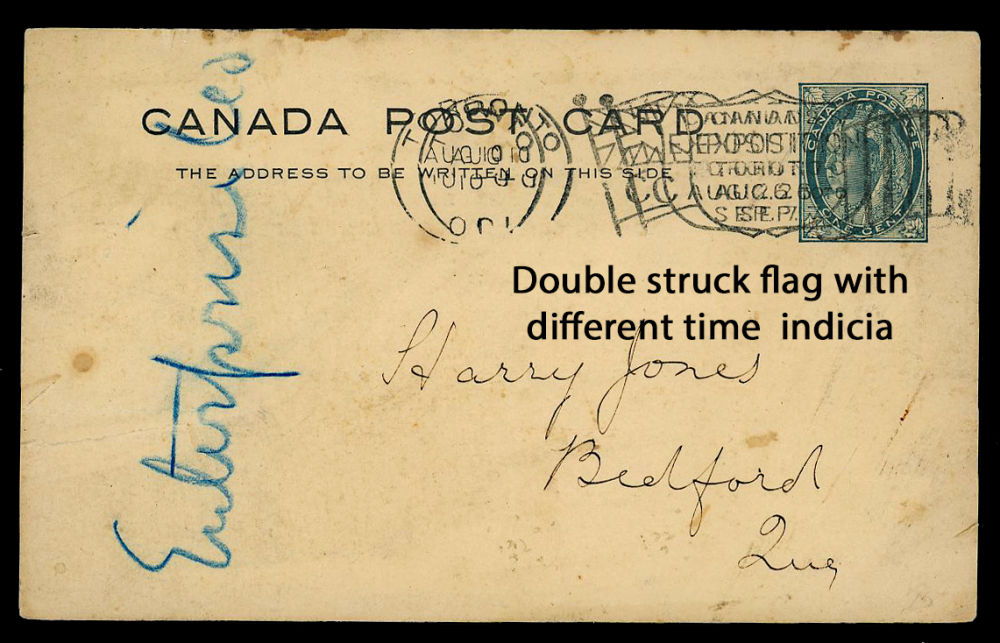 CANADA POST CARD
THE ADDRESS TO BE WRITTEN ON THIS SIDE
TORONTO
AUG 10
CANADA POSTAGE
ONE CENT
TORONTO
AUG 26
SEP
Double struck flag with
different time indicia
Harry Jones
Bedford
Que